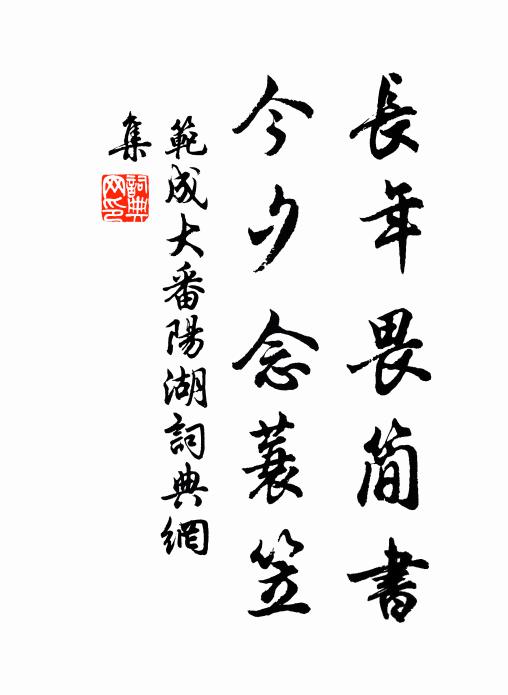 長年畏簡書
今夕念蓑笠
範成大番陽湖詞典網
集
詞典網印